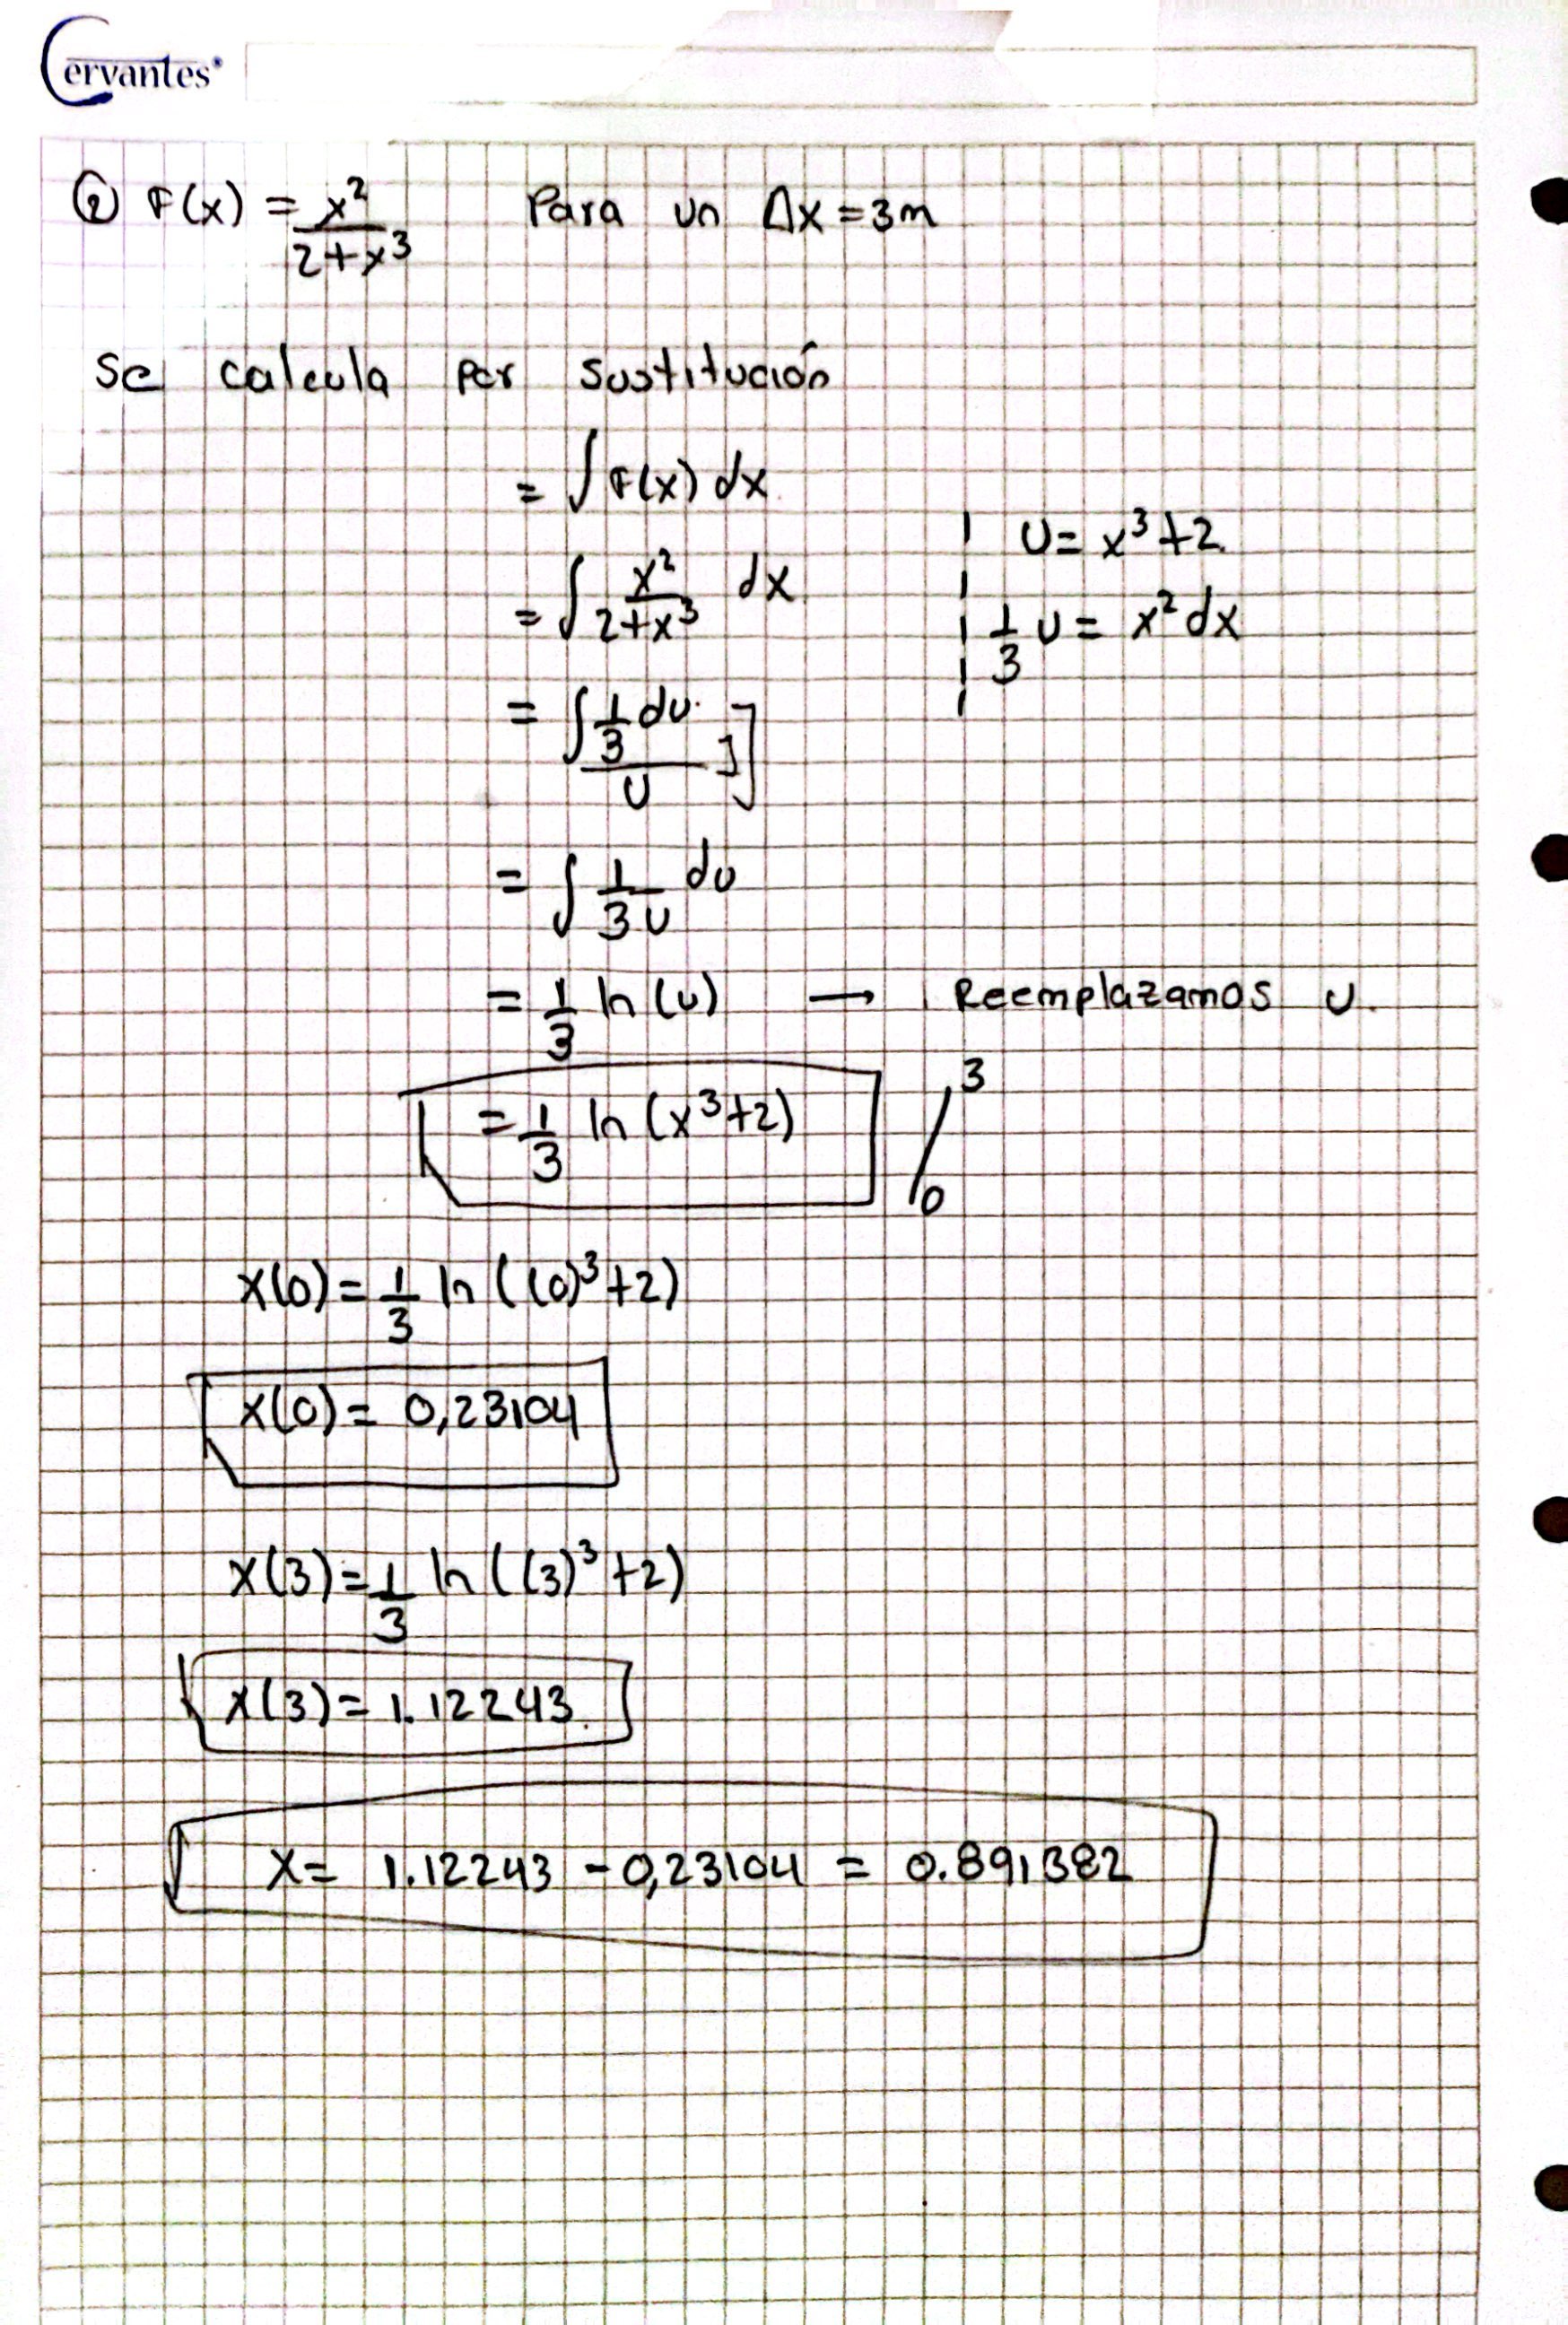 Cervantes®
② F(x) = x²/(2+x³) Para un Δx = 3m
Se calcula por sustitución
= ∫ F(x) dx
= ∫ x²/(2+x³) dx
U = x³+2
1/3 U = x² dx
= ∫ (1/3 du)/U ]]
= ∫ 1/(3U) du
= 1/3 ln (u) → Reemplazamos U.
= 1/3 ln (x³+2) / 3 0
x(0) = 1/3 ln ((0)³+2)
x(0) = 0,23104
x(3) = 1/3 ln ((3)³+2)
x(3) = 1.12243.
x = 1.12243 - 0,23104 = 0.891382